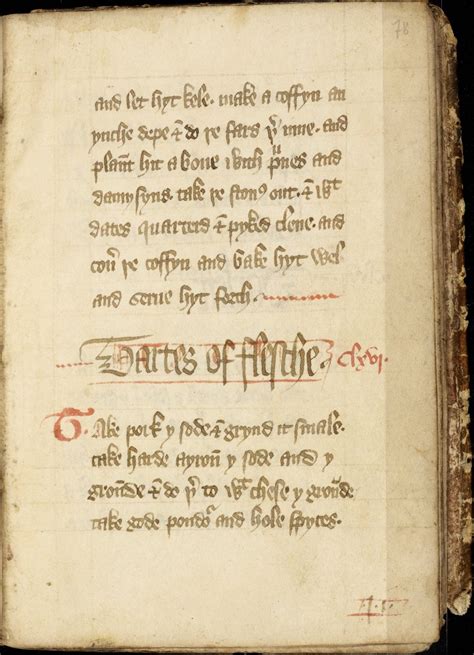 78
and let hyt kele. make a coffyn an
ynche depe & do þe fars þ̉ inne. and
plant̄ hit a boue with p̉nes and
damysyns take þe stonꝰ out. & wͭ
dates quarterd & pyked clene. and
coū þe coffyn and bake hyt wel
and serue hyt forth.
Tartes of flesche. clxvi.
Take pork y sode & grynd it smale.
take harde ayroū y sode and y
groūde & do þ̉ to wͭ chese y groūde
take gode poudo͛ and hole spyces.